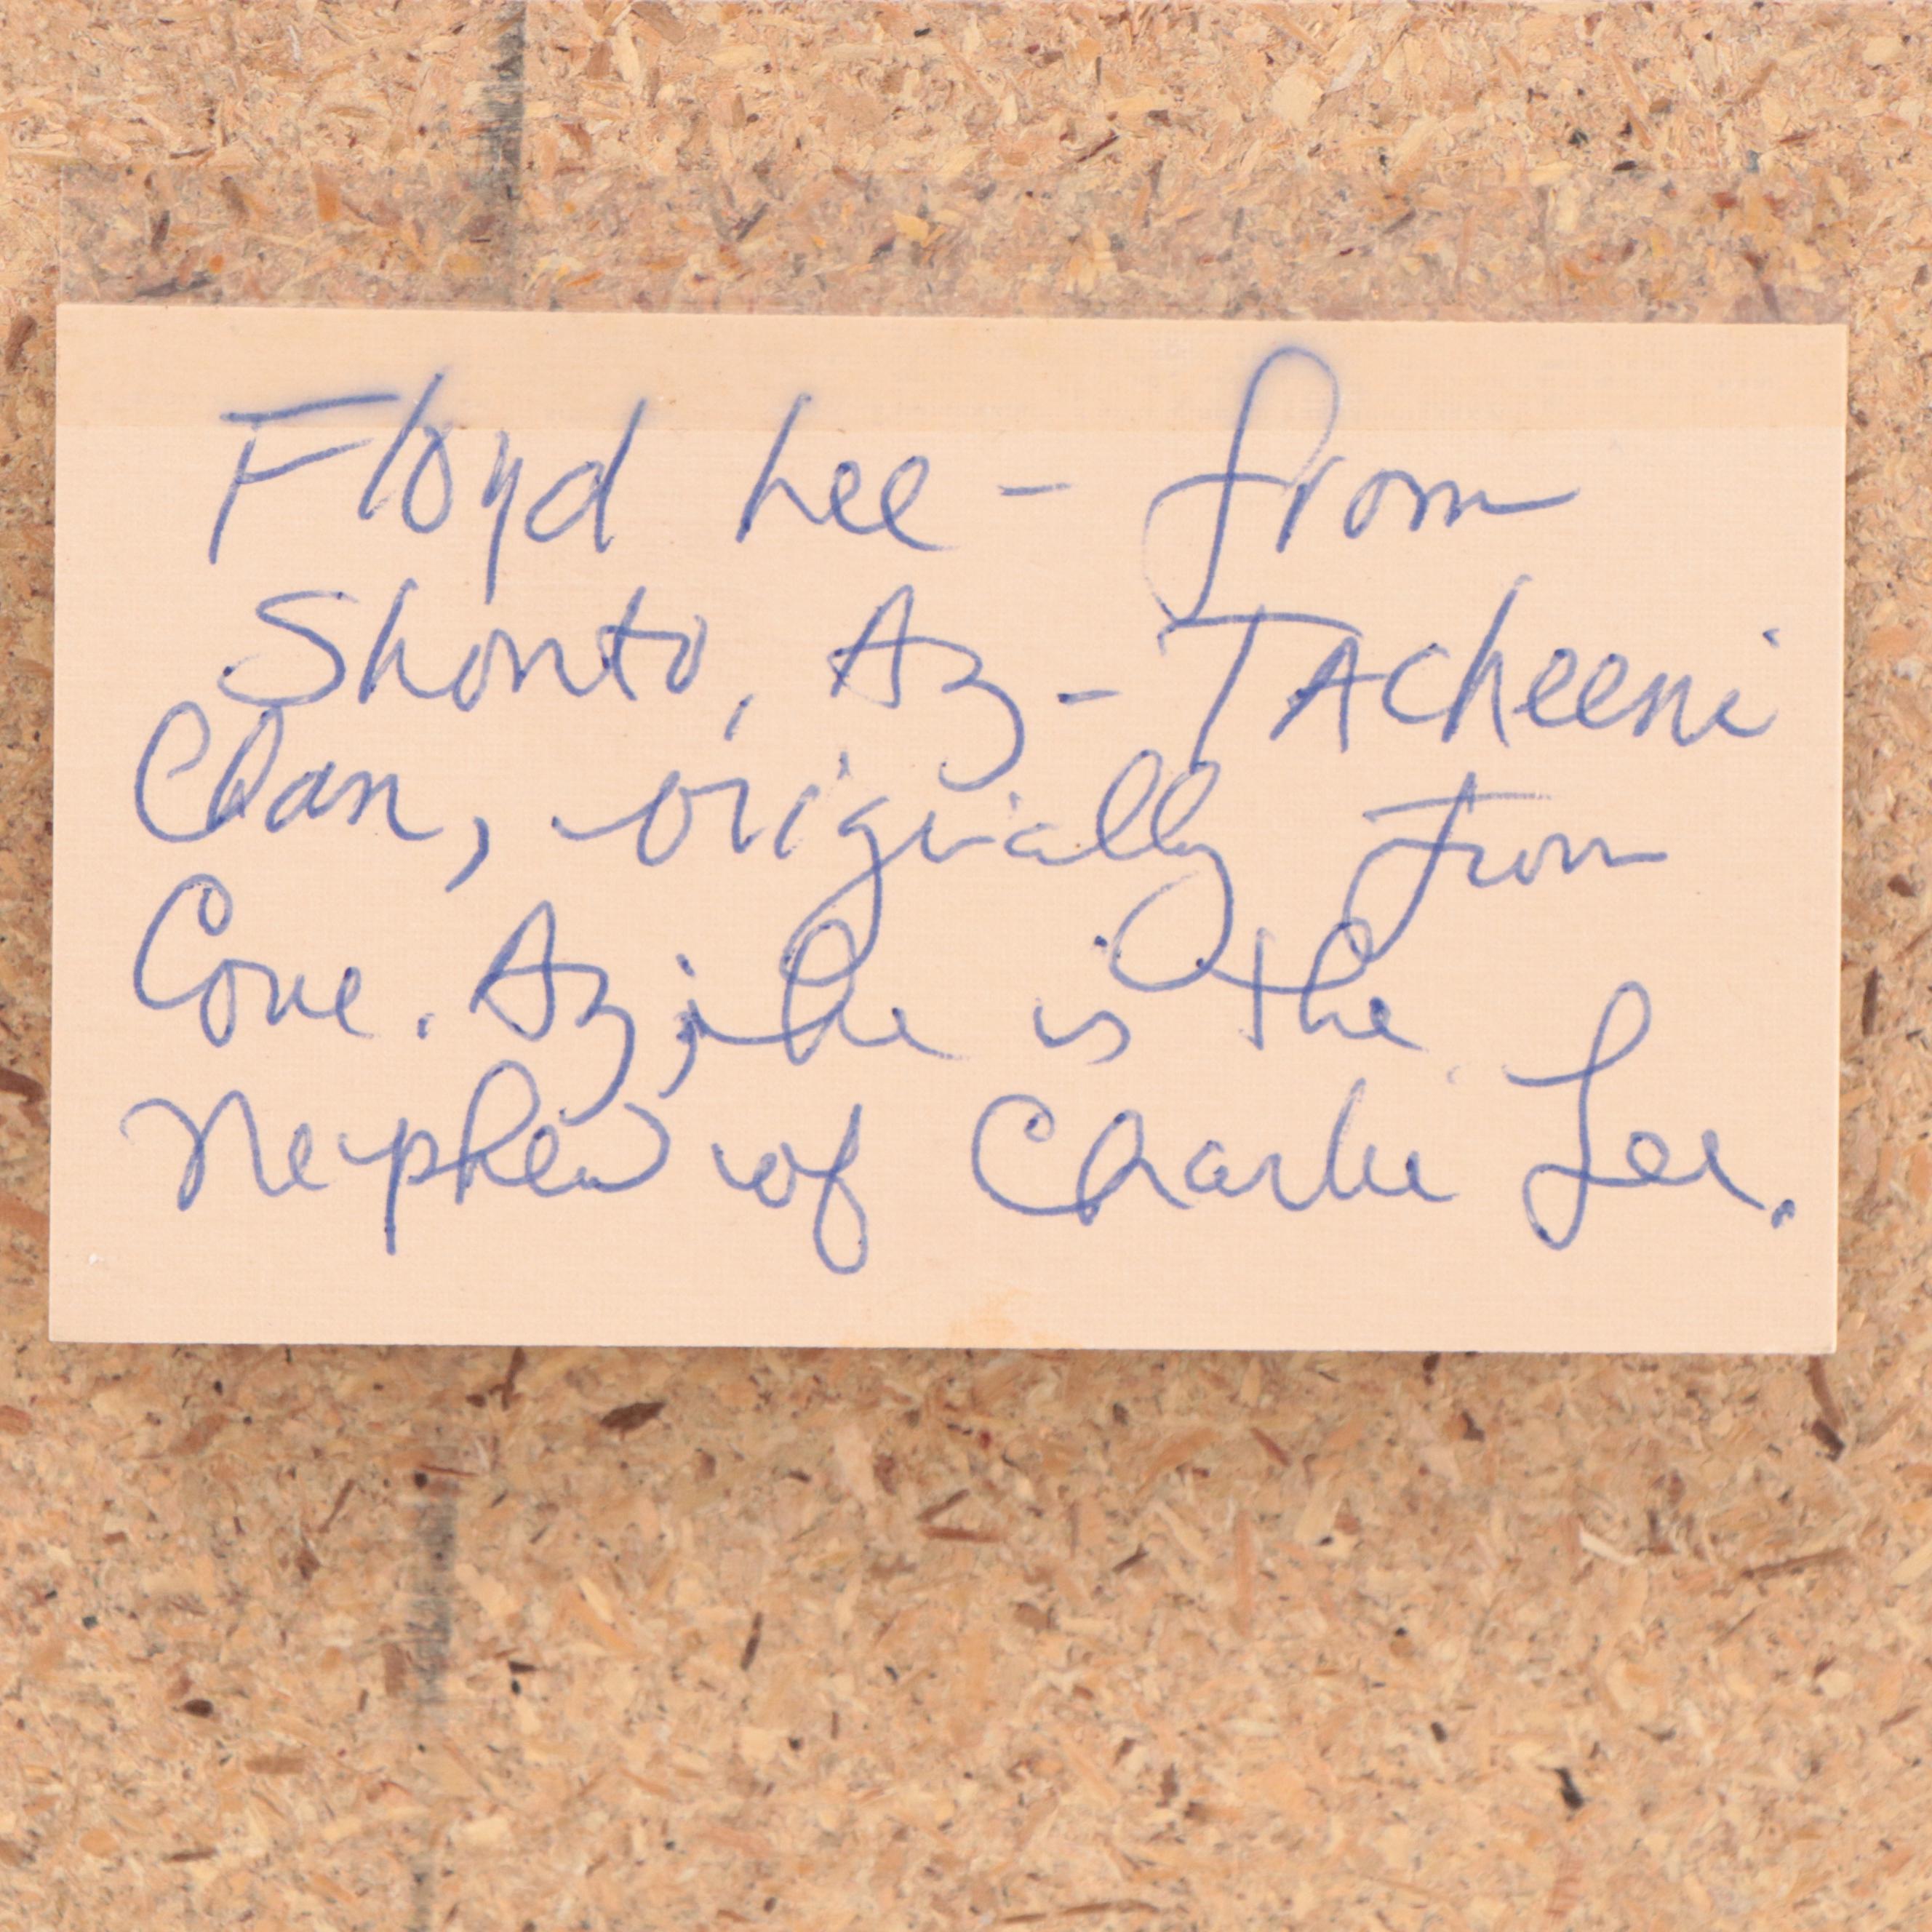 Floyd Lee - from
Shonto, Az - TAcheeni
Clan, originally from
Cove. Az; he is the
Nephew of Charlie Lee.